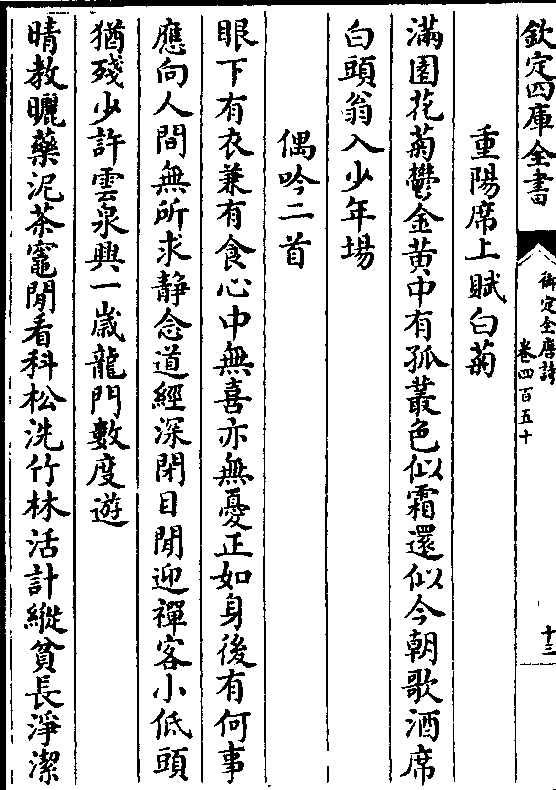 欽定四庫全書
御定全唐詩
卷四百五十
十三
重陽席上賦白菊
滿園花菊鬱金黃中有孤叢色似霜還似今朝歌酒席
白頭翁入少年場
偶吟二首
眼下有衣兼有食心中無喜亦無憂正如身後有何事
應向人間無所求静念道經深閉目閒迎禪客小低頭
猶殘少許雲泉興一歲龍門數度遊
晴教曬藥泥茶竈閒看科松洗竹林活計縱貧長淨潔